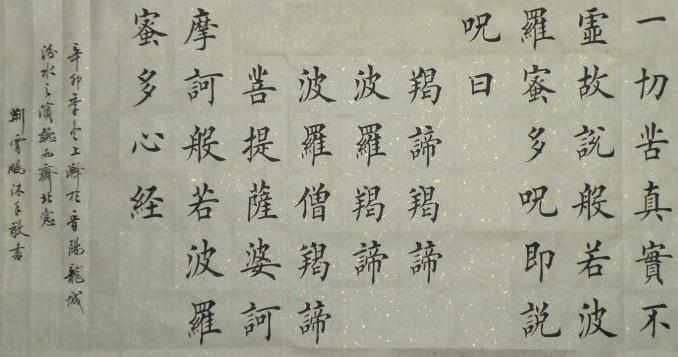 一切苦真實不
虛故説般若波
羅蜜多呪即説
呪曰
羯諦羯諦
波羅羯諦
波羅僧羯諦
菩提薩婆訶
摩訶般若波羅
蜜多心経
辛卯季冬上澣於晉陽龍城
汾水之濱齋北窗
荊霄鵬沐手敬書